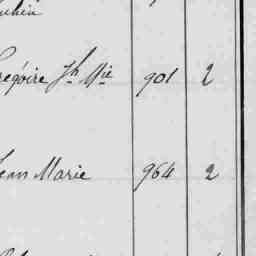 régoire Jh Mie 901 2
Jean Marie 964 2